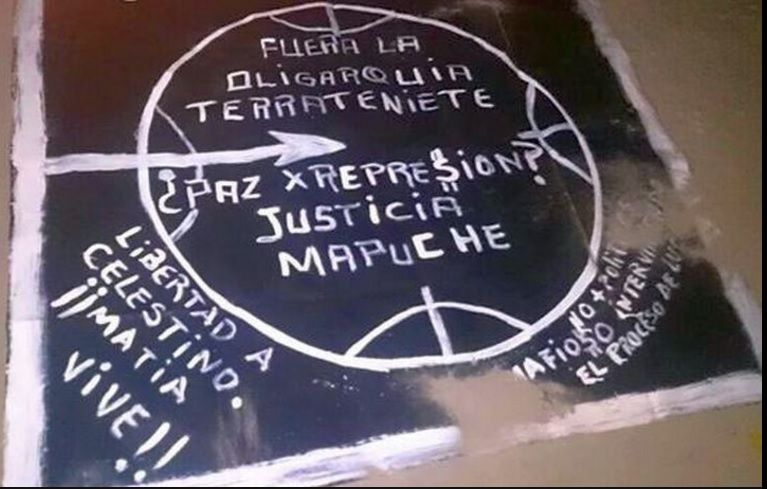 FUERA LA
OLIGARQUIA
TERRATENIETE
¿PAZ X REPRE$ION?
JUSTICIA
MAPUCHE
LIBERTAD A
CELESTINO.
¡¡MATIA
VIVE!!
NO +
NO
EL PROCESO DE